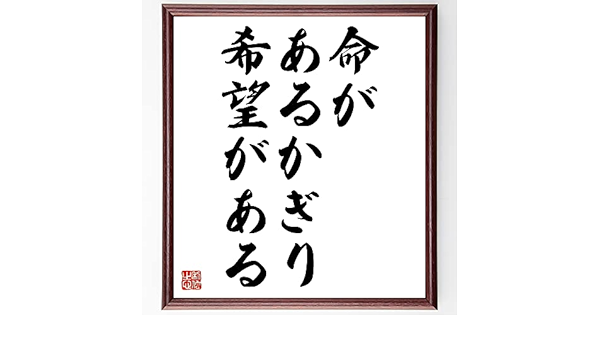 命が
あるかぎり
希望がある